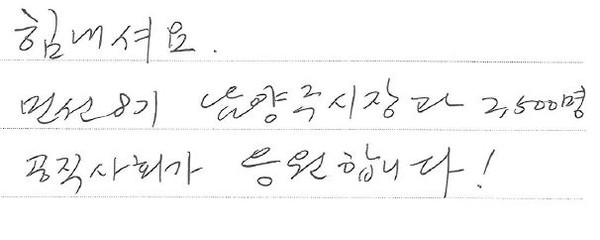 힘내셔요.
민선8기 남양주시장과 2,500명
공직사회가 응원합니다!